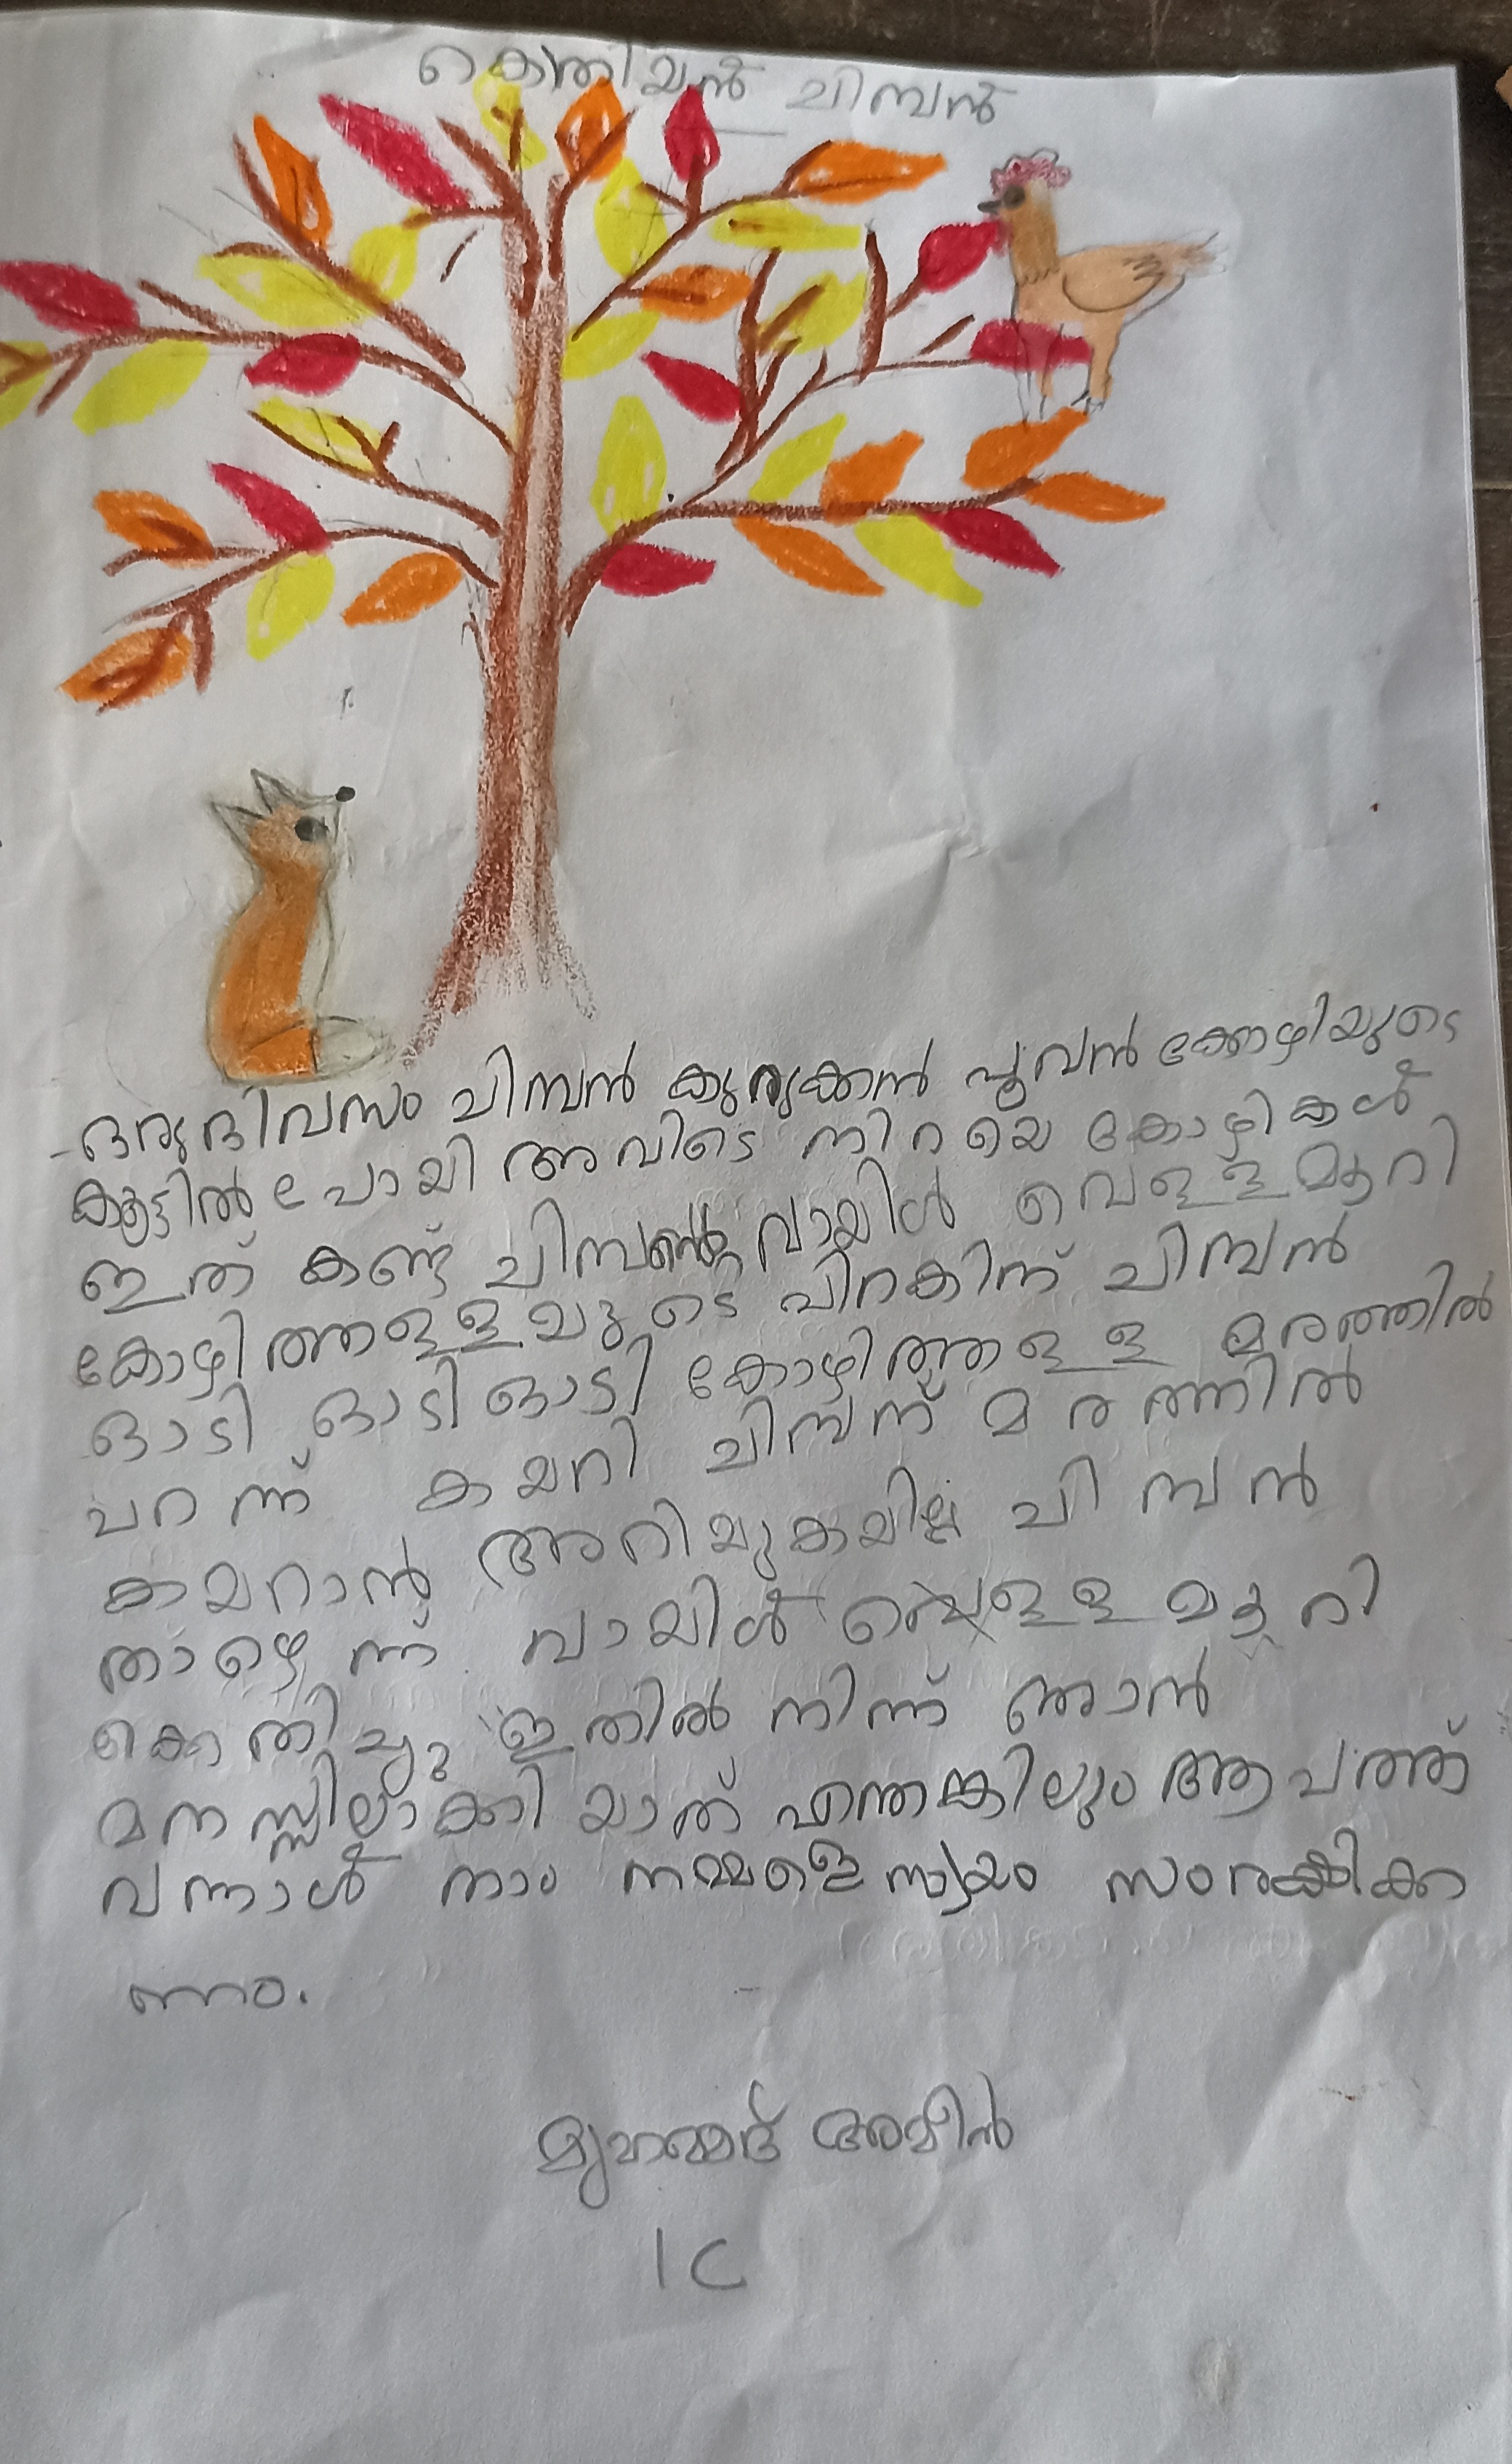 കൊതിയൻ ചിമ്പൻ
ഒരു ദിവസം ചിമ്പൻ കുരുക്കാൻ പൂവൻ കോഴിയുടെ
കൂട്ടിൽ പോയി അവിടെ നിറയെ കോഴികൾ
ഇത് കണ്ട് ചിമ്പന്റെ വായിൾ വെള്ളമൂറി
കോഴിത്തള്ളയുടെ പിറകിന് ചിമ്പൻ
ഓടി ഓടിഓടി കോഴിത്തള്ള മരത്തിൽ
പറന്ന് കയറി ചിമ്പന് മരത്തിൽ
കയറാൻ അറിയുകയില്ല ചിമ്പൻ
താഴെ ന്ന് വായിൾ വെള്ളമൂറി
കൊതിച്ചു ഇതിൽ നിന്ന് ഞാൻ
മനസ്സിലാക്കിയാത് എന്തങ്കിലും ആപത്ത്
വന്നാൾ നാം നമ്മളെ സ്വയം സംരക്ഷിക്ക
ണം.
മുഹമ്മദ് അമീൻ
1 C